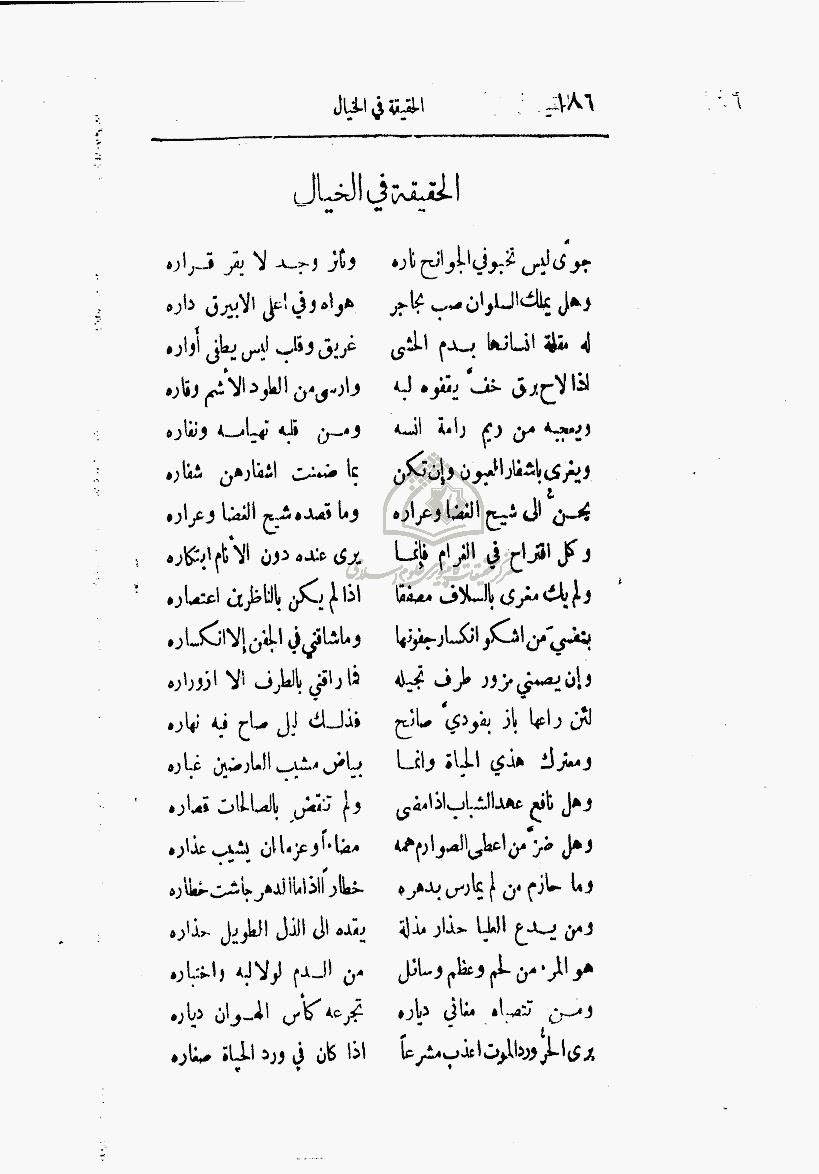 ١٨٦ الحقيقة في الخيال
الحقيقة في الخيال
جوىً ليس تخبو في الجوانح ناره وثائر وجد لا يقر قراره
وهل يملك السلوان صب بحاجر هواه وفي اعلى الابيرق داره
له مقلة انسانها بدم الحشى غريق وقلب ليس يطفى أواره
اذا لاح برق خفّ يقفوه لبه وارسى من الطود الأشم وقاره
ويعجبه من ريم رامة انسه ومن قلبه تهيامه ونفاره
ويغرى باشفار العيون وإن تكن بما ضمنت اشفارهن شفاره
يحنُّ الى شيح الغضا وعراره وما قصده شيح الغضا وعراره
وكل اقتراح في الغرام فإنما يرى عنده دون الأنام ابتكاره
ولم يك مغرى بالسلاف مصفقا اذا لم يكن بالناظرين اعتصاره
بنفسيَ من اشكو انكسار جفونها وما شاقني في الجفن إلا انكساره
وإن يصمني مزور طرف تجيله فما راقني بالطرف الا ازوراره
لئن راعها باز بفوديّ صائح فذلك ليل صاح فيه نهاره
ومعترك هذي الحياة وانما بياض مشيب العارضين غباره
وهل نافع عهد الشباب اذا مضى ولم تنقض بالصالحات قصاره
وهل ضرَّ من اعطى الصوارم همه مضاءاً وعزما ان يشيب عذاره
وما حازم من لم يمارس بدهره خطاراً اذا ما الدهر جاشت خطاره
ومن يدع العليا حذار مذلة يقده الى الذل الطويل حذاره
هو المرء من لحم وعظم وسائل من الدم لولا لبه واختباره
ومن تتصباه مغاني دياره تجرعه كأس الهوان دياره
يرى الحرُّ ورد الموت اعذب مشرعاً اذا كان في ورد الحياة صغاره